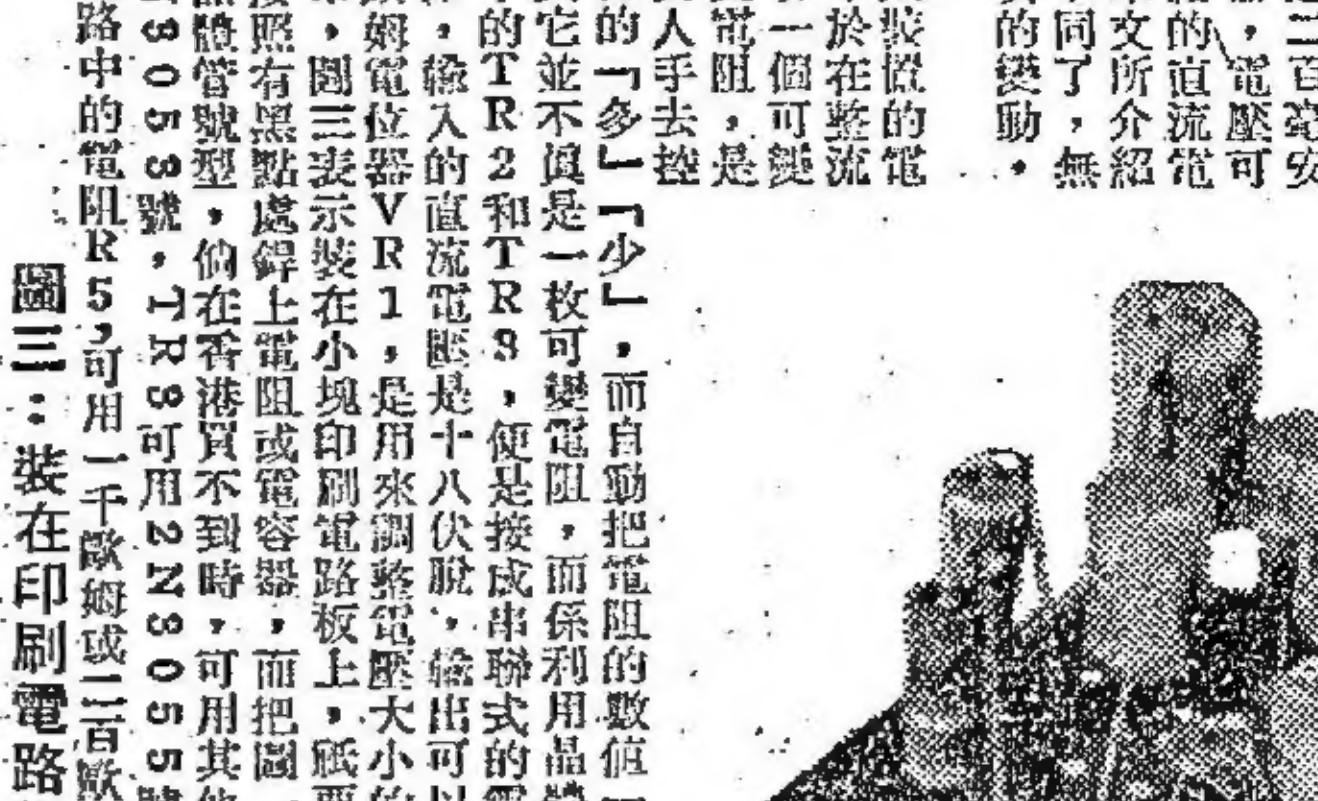 二百毫安
，電壓可
的直流電
文所介紹
同了，無
的變動。
裝置的電
於在整流
一個可變
電阻，是
人手去控
的「多」「少」，而自動把電阻的數值
它並不眞是一枚可變電阻，而係利用晶體
的TR2和TR3，便是接成串聯式的電
，輸入的直流電壓是十八伏脫，輸出可以
姆電位器VR1，是用來調整電壓大小的
，圖三表示裝在小塊印刷電路板上，祇要
按照有黑點處銲上電阻或電容器，而把圖
體管號型，倘在香港買不到時，可用其他
3053號，TR3可用2N3055號
路中的電阻R5，可用一千歐姆或二百歐
圖三：裝在印刷電路